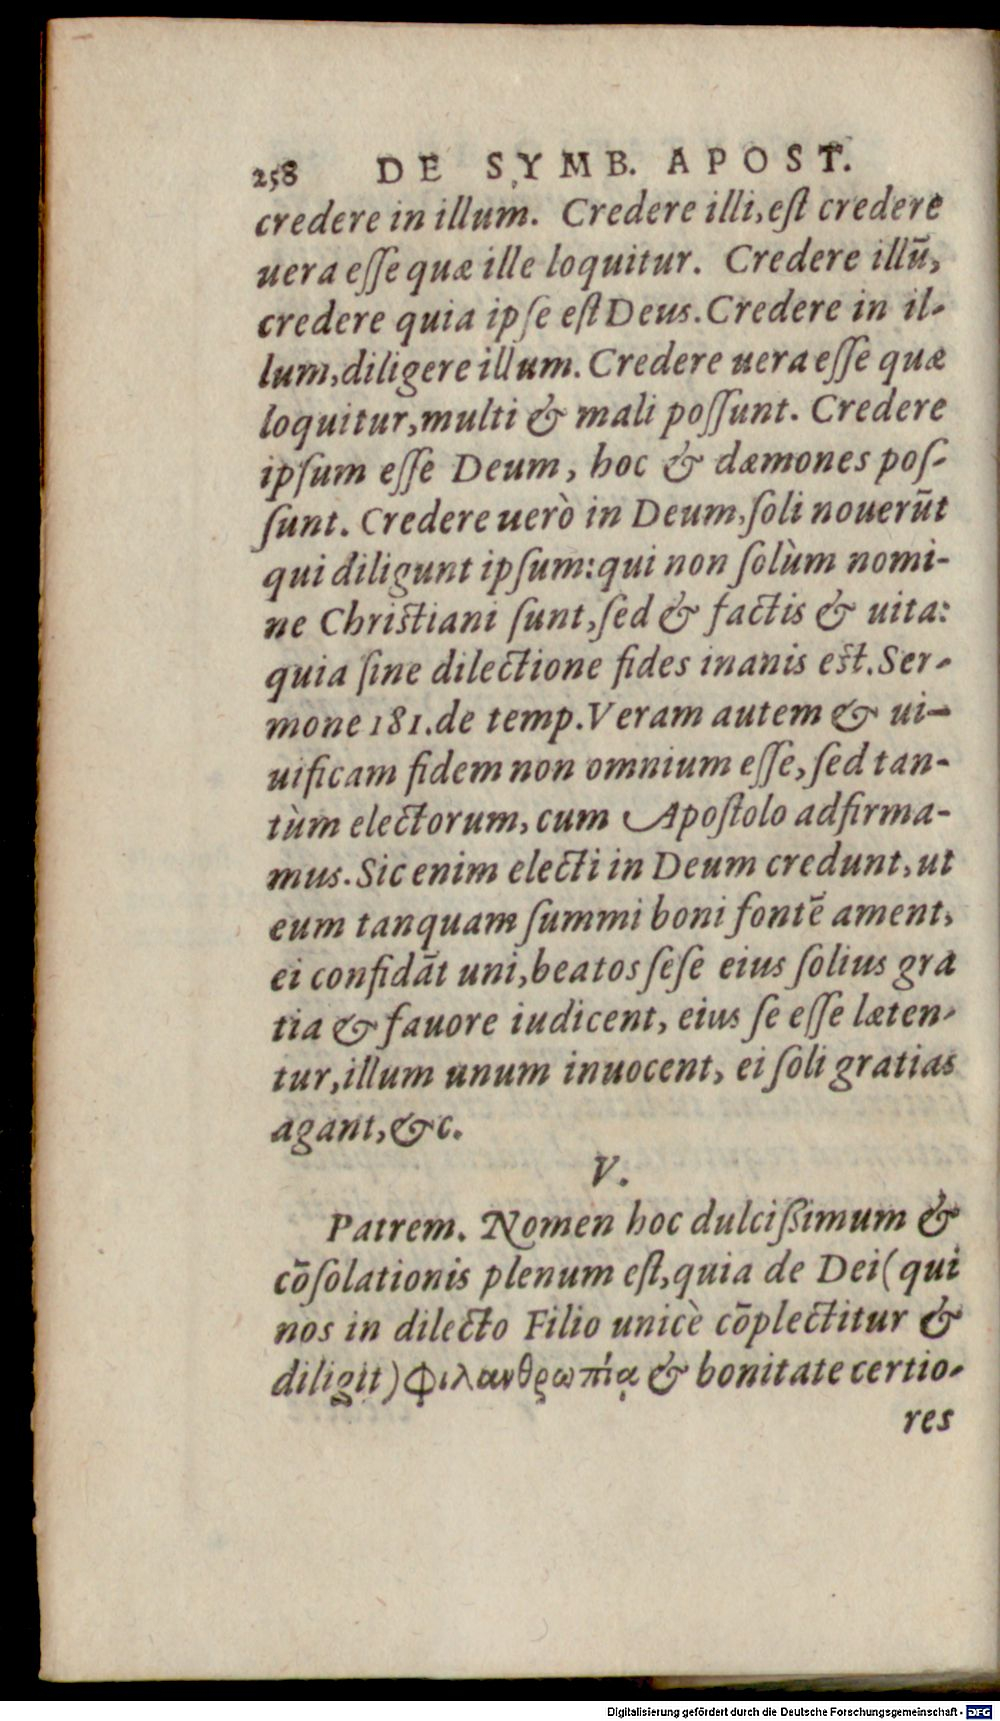 258 DE SYMB. APOST.
credere in illum. Credere illi, eſt credere
uera eſſe quæ ille loquitur. Credere illū,
credere quia ipſe eſt Deus. Credere in il-
lum, diligere illum. Credere uera eſſe quæ
loquitur, multi & mali poſſunt. Credere
ipſum eſſe Deum, hoc & dæmones poſ-
ſunt. Credere uerò in Deum, ſoli nouerūt
qui diligunt ipſum: qui non ſolùm nomi-
ne Chriſtiani ſunt, ſed & factis & uita:
quia ſine dilectione fides inanis eſt. Ser-
mone 181. de temp. Veram autem & ui-
uificam fidem non omnium eſſe, ſed tan-
tùm electorum, cum Apoſtolo adfirma-
mus. Sic enim electi in Deum credunt, ut
eum tanquam ſummi boni fontē ament,
ei confidāt uni, beatos ſeſe eius ſolius gra
tia & fauore iudicent, eius ſe eſſe læten-
tur, illum unum inuocent, ei ſoli gratias
agant, &c.
V.
Patrem. Nomen hoc dulcißimum &
cōſolationis plenum eſt, quia de Dei (qui
nos in dilecto Filio unicè cōplectitur &
diligit) Φιλανθρωπίᾳ & bonitate certio-
res
Digitalisierung gefördert durch die Deutsche Forschungsgemeinschaft - DFG